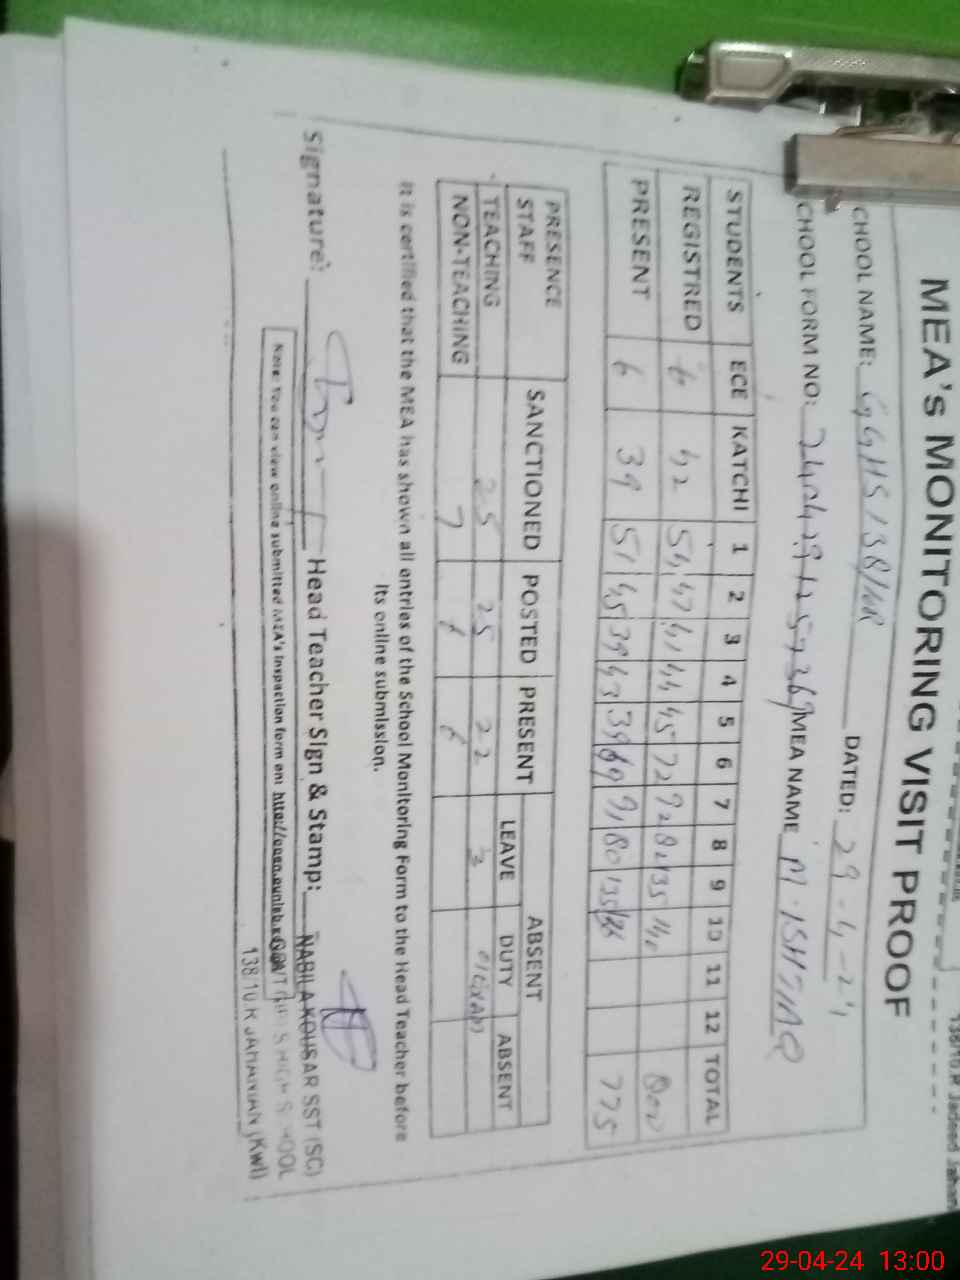 138/10.R Jadeed Jahan
MEA's MONITORING VISIT PROOF
CHOOL NAME: GGHS 138/10R DATED: 29-4-24
CHOOL FORM NO: MEA NAME M. ISHTIAQ
STUDENTS ECE KATCHI 1 2 3 4 5 6 7 8 9 10 11 12 TOTAL
REGISTRED 6 42 54 47 41 44 45 72 92 82 135 140 800
PRESENT 6 39 51 45 39 43 39 69 91 80 135 775
PRESENCE STAFF SANCTIONED POSTED PRESENT ABSENT
LEAVE DUTY ABSENT
TEACHING 25 25 22 3
NON-TEACHING 7 6 6
It is certified that the MEA has shown all entries of the School Monitoring Form to the Head Teacher before
its online submission.
Signature: Head Teacher Sign & Stamp: NABILA KOUSAR SST (SC)
GOVT GIRLS HIGH SCHOOL
138/10.R JAHANIAN (Kwl)
Note: You can view online submitted MEA's inspection form on: http://open.punjab.
29-04-24 13:00